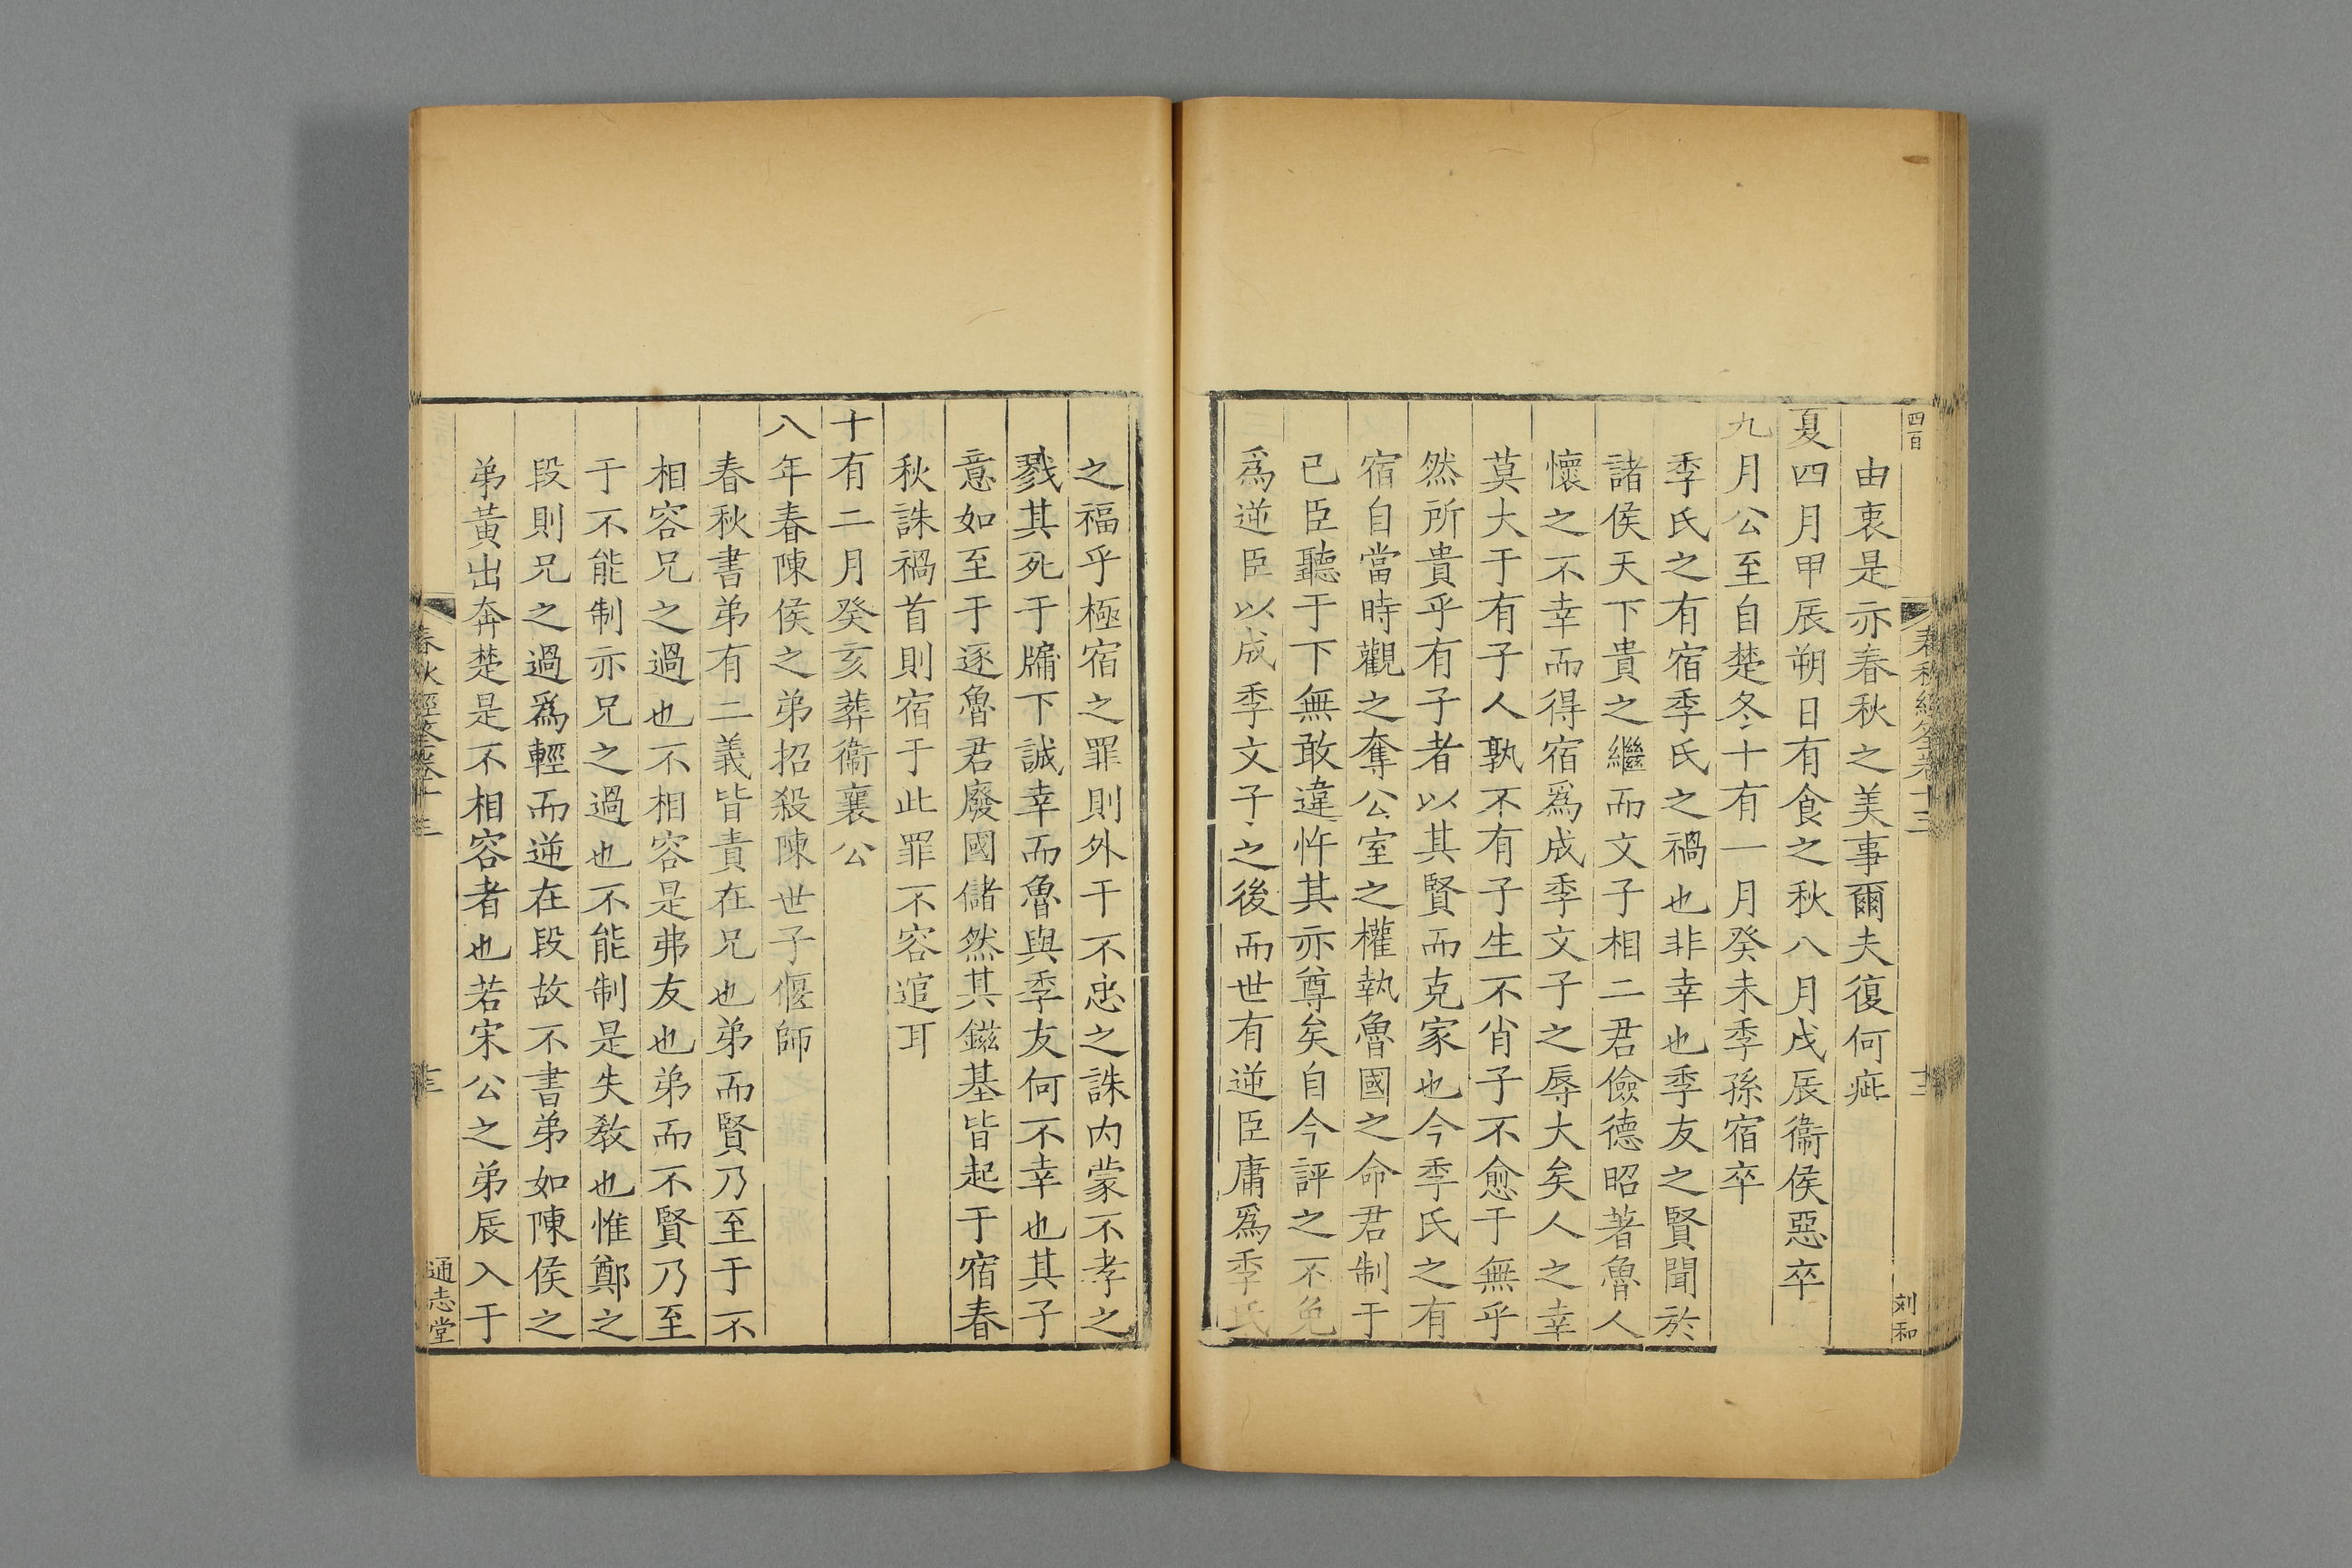 四百
春秋經筌卷十三
十二
刘和
由衷是亦春秋之美事爾夫復何疵
夏四月甲辰朔日有食之秋八月戌辰衞侯惡卒
九月公至自楚冬十有一月癸未季孫宿卒
季氏之有宿季氏之禍也非幸也季友之賢聞於
諸侯天下貴之繼而文子相二君儉德昭著魯人
懷之不幸而得宿爲成季文子之辱大矣人之幸
莫大于有子人孰不有子生不肖子不愈于無乎
然所貴乎有子者以其賢而克家也今季氏之有
宿自當時觀之奪公室之權執魯國之命君制于
已臣聽于下無敢違忤其亦尊矣自今評之不免
爲逆臣以成季文子之後而世有逆臣庸爲季氏
之福乎極宿之罪則外干不忠之誅内蒙不孝之
戮其死于牖下誠幸而魯與季友何不幸也其子
意如至于逐魯君廢國儲然其鎡基皆起于宿春
秋誅禍首則宿于此罪不容逭耳
十有二月癸亥葬衞襄公
八年春陳侯之弟招殺陳世子偃師
春秋書弟有二義皆責在兄也弟而賢乃至于不
相容兄之過也不相容是弗友也弟而不賢乃至
于不能制亦兄之過也不能制是失教也惟鄭之
段則兄之過爲輕而逆在段故不書弟如陳侯之
弟黃出奔楚是不相容者也若宋公之弟辰入于
春秋經筌卷十三
十三
通志堂